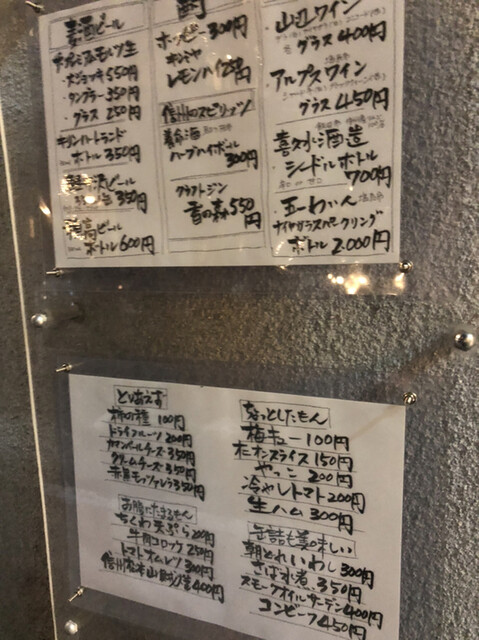 麦酒ビール
大ジョッキ 550円
・タンブラー 350円
・グラス 250円
キリンハートランド
ボトル 350円
ビール
350円
ビール
ボトル 600円
ホッピー 300円
キンミヤ
レモンハイ 250円
信州のスピリッツ
養命酒
ハーブハイボール
300円
クラフトジン
香の森 550円
山辺ワイン
グラス 400円
アルプスワイン
グラス 450円
喜久水酒造
シードルボトル
700円
五一わいん
ナイヤガラスパークリング
ボトル 2,000円
とりあえず
柿の種 100円
ドライフルーツ 200円
カマンベールチーズ 350円
クリームチーズ 350円
モッツァレラ 350円
お腹にたまるもん
ちくわ天ぷら 200円
牛肉コロッケ 250円
トマトオムレツ 300円
信州 山賊 400円
ちょっとしたもん
梅キュー 100円
オニオンスライス 150円
やっこ 200円
冷やしトマト 200円
生ハム 300円
缶詰も美味しい
朝どれいわし 300円
さば水煮 350円
スモークオイルサーデン 400円
コンビーフ 450円